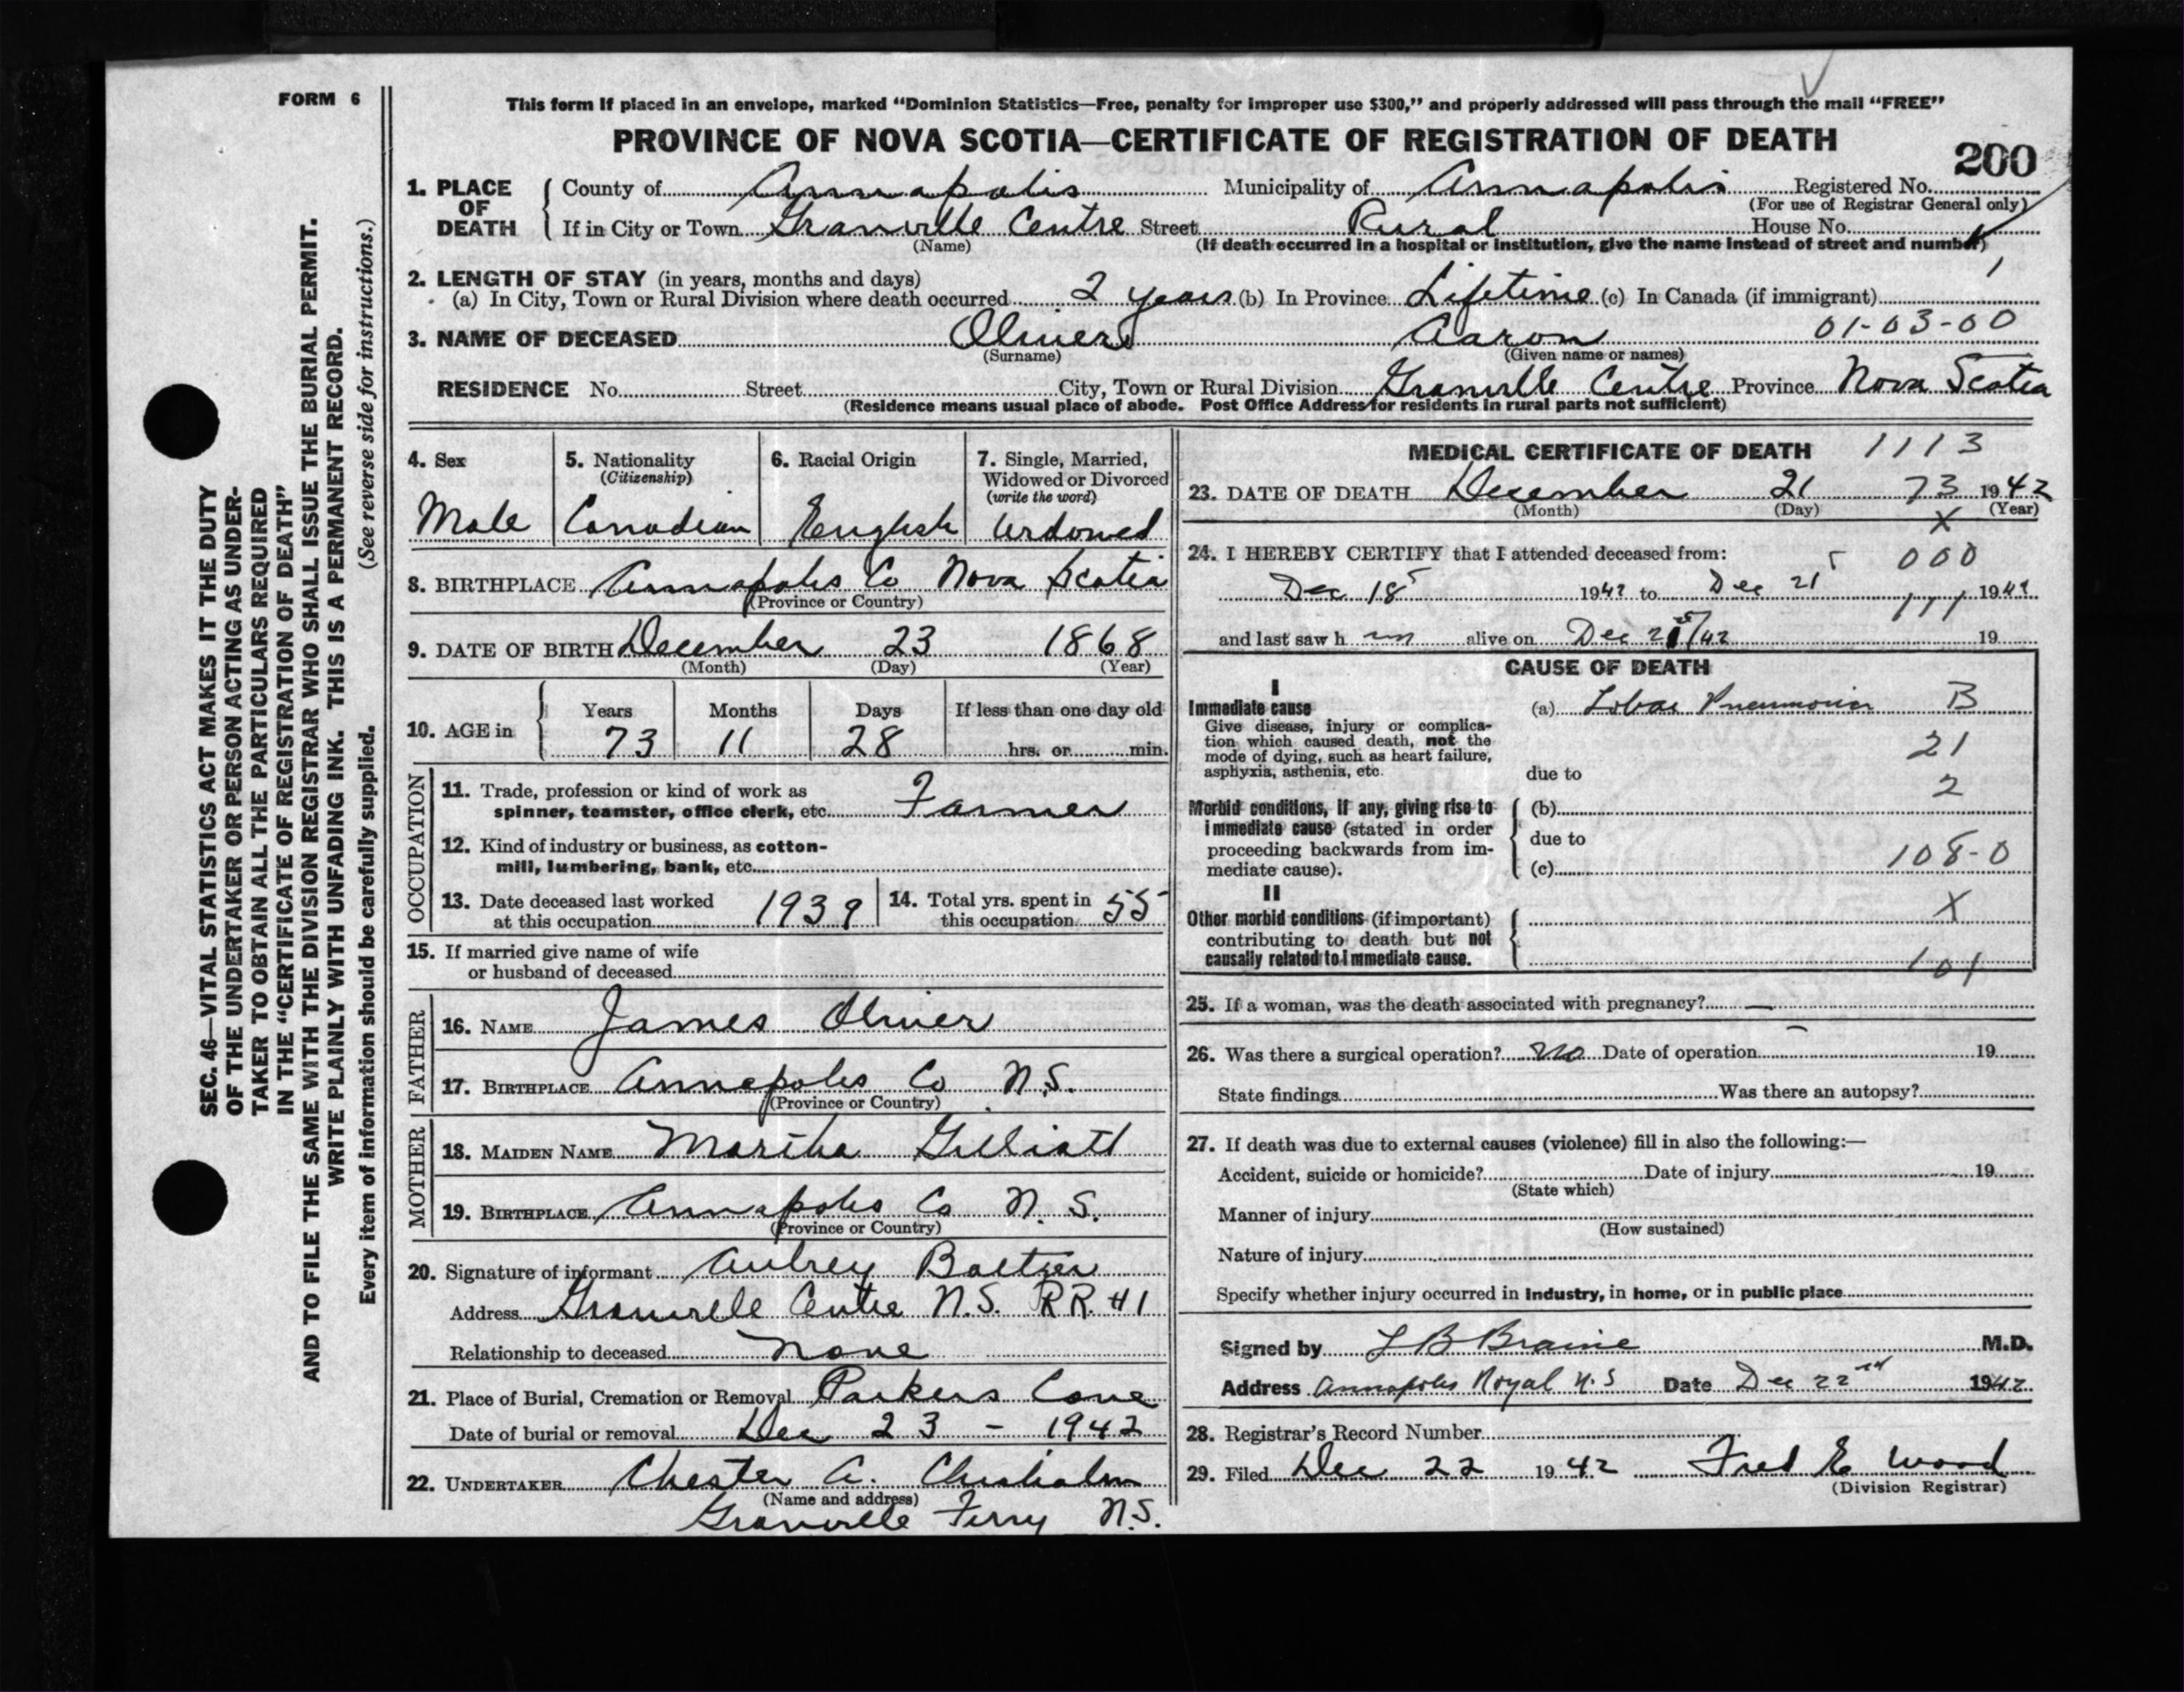 FORM 6
This form if placed in an envelope, marked “Dominion Statistics—Free, penalty for improper use $300,” and properly addressed will pass through the mail “FREE”
PROVINCE OF NOVA SCOTIA—CERTIFICATE OF REGISTRATION OF DEATH
200
1. PLACE OF DEATH { County of Annapolis Municipality of Annapolis Registered No.
(For use of Registrar General only)
If in City or Town Granville Centre Street Rural House No.
(Name) (If death occurred in a hospital or institution, give the name instead of street and number)
2. LENGTH OF STAY (in years, months and days)
(a) In City, Town or Rural Division where death occurred 2 years (b) In Province Lifetime (c) In Canada (if immigrant)
3. NAME OF DECEASED Oliver Aaron 01-03-00
(Surname) (Given name or names)
RESIDENCE No. Street City, Town or Rural Division Granville Centre Province Nova Scotia
(Residence means usual place of abode. Post Office Address for residents in rural parts not sufficient)
4. Sex
Male
5. Nationality
(Citizenship)
Canadian
6. Racial Origin
English
7. Single, Married,
Widowed or Divorced
(write the word)
Widowed
8. BIRTHPLACE Annapolis Co Nova Scotia
(Province or Country)
9. DATE OF BIRTH December 23 1868
(Month) (Day) (Year)
10. AGE in { Years Months Days If less than one day old
73 11 28 hrs. or min.
OCCUPATION
11. Trade, profession or kind of work as
spinner, teamster, office clerk, etc. Farmer
12. Kind of industry or business, as cotton-
mill, lumbering, bank, etc.
13. Date deceased last worked
at this occupation 1939
14. Total yrs. spent in
this occupation 55
15. If married give name of wife
or husband of deceased
FATHER
16. NAME James Oliver
17. BIRTHPLACE Annapolis Co N.S.
(Province or Country)
MOTHER
18. MAIDEN NAME Martha Gilliatt
19. BIRTHPLACE Annapolis Co N. S.
(Province or Country)
20. Signature of informant Aubrey
Address Granville Centre N.S. RR #1
Relationship to deceased None
21. Place of Burial, Cremation or Removal Parkers Cove
Date of burial or removal Dec 23 - 1942
22. UNDERTAKER Chester A. Chisholm
(Name and address)
Granville Ferry N.S.
MEDICAL CERTIFICATE OF DEATH 1113
23. DATE OF DEATH December 21 73 1942
(Month) (Day) (Year)
X
24. I HEREBY CERTIFY that I attended deceased from: 000
Dec 18 1942 to Dec 21 1942
111
and last saw h im alive on Dec 21/42 19
CAUSE OF DEATH
I
Immediate cause
Give disease, injury or complica-
tion which caused death, not the
mode of dying, such as heart failure,
asphyxia, asthenia, etc.
(a) Lobar Pneumonia B
21
due to
2
Morbid conditions, if any, giving rise to
immediate cause (stated in order
proceeding backwards from im-
mediate cause).
(b)
due to
108-0
(c)
II
Other morbid conditions (if important)
contributing to death but not
causally related to immediate cause.
X
101
25. If a woman, was the death associated with pregnancy? —
26. Was there a surgical operation? No Date of operation – 19
State findings Was there an autopsy?
27. If death was due to external causes (violence) fill in also the following:—
Accident, suicide or homicide? Date of injury 19
(State which)
Manner of injury
(How sustained)
Nature of injury
Specify whether injury occurred in industry, in home, or in public place
Signed by L B Braine M.D.
Address Annapolis Royal N.S Date Dec 22nd 1942
28. Registrar's Record Number
29. Filed Dec 22 1942 Fred E Wood
(Division Registrar)
SEC. 46—VITAL STATISTICS ACT MAKES IT THE DUTY
OF THE UNDERTAKER OR PERSON ACTING AS UNDER-
TAKER TO OBTAIN ALL THE PARTICULARS REQUIRED
IN THE “CERTIFICATE OF REGISTRATION OF DEATH”
AND TO FILE THE SAME WITH THE DIVISION REGISTRAR WHO SHALL ISSUE THE BURIAL PERMIT.
WRITE PLAINLY WITH UNFADING INK. THIS IS A PERMANENT RECORD.
Every item of information should be carefully supplied. (See reverse side for instructions.)